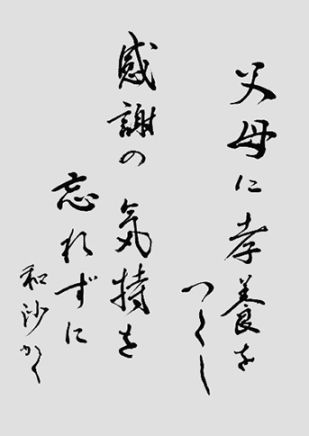 父母に孝養を
つくし
感謝の気持を
忘れずに
和沙かく